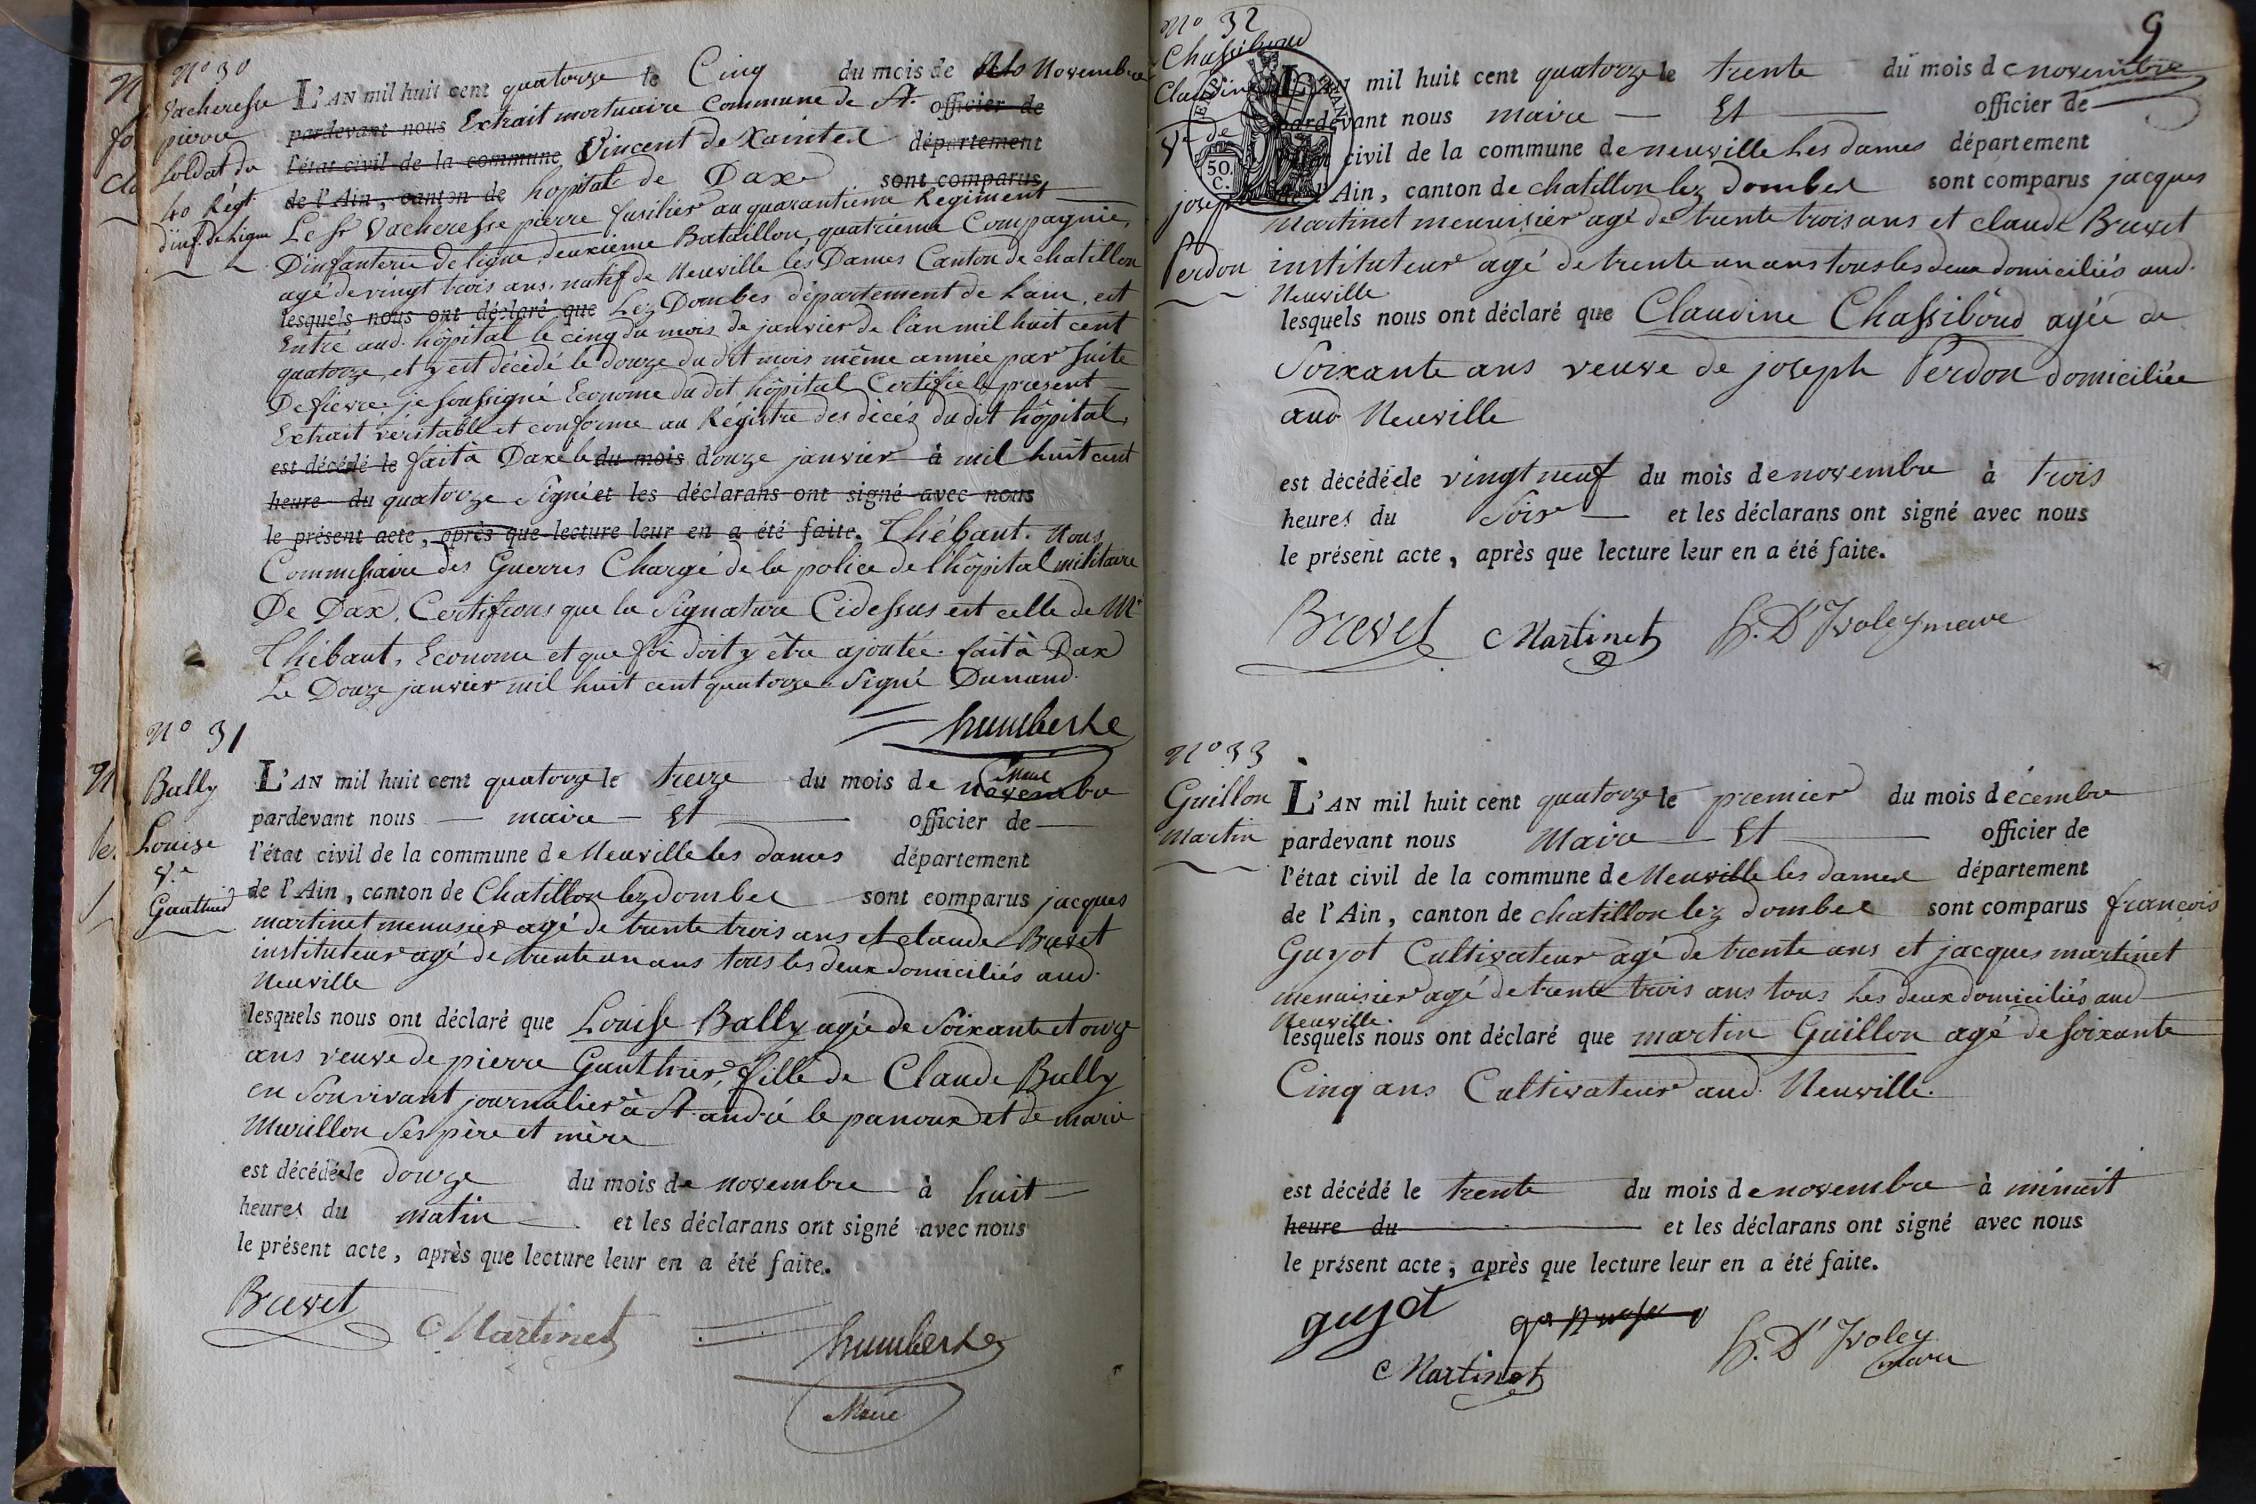 N° 30
Vacheresse
pierre
Soldat du
40 Régt
d'inf. de Ligne
L'AN mil huit cent quatorze le Cinq du mois de Novembre
pardevant nous Extrait mortuaire Commune de St. officier de
l'état civil de la commune Vincent de Xaintes département
de l'Ain, canton de hopital de Dax sont comparus
Le Sr Vacheresse pierre fusilier au quarantième Regiment
D'infanterie de ligne, deuxième Bataillon, quatrième Compagnie,
agé de vingt trois ans, natif de Neuville les Dames Canton de chatillon
lesquels nous ont déclaré que Lez Dombes département de Lain, est
Entré aud. hôpital le cinq du mois de janvier de l'an mil huit cent
quatorze, et y est décédé le douze du dit mois même année par suite
De fievre. je soussigné Econome du dit hôpital Certifie le présent
Extrait véritable et conforme au Régistre des décès du dit hôpital,
est décédé le fait à Dax le du mois douze janvier à mil huit cent
heure du quatorze Signé et les déclarans ont signé avec nous
le présent acte, après que lecture leur en a été faite. Thébaut. Nous
Commissaire des Guerres Chargé de la police de l'hôpital militaire
De Dax, Certifions que la Signature Cidessus est celle de Mr
Thébaut, Econome et que foi doit y être ajoutée. fait à Dax
Le Douze janvier mil huit cent quatorze. Signé Dunand.
humberte
N° 31
Bally
Louise
Ve
Gauthier
L'AN mil huit cent quatorze le treize du mois de novembre
pardevant nous — maire — Et — officier de —
l'état civil de la commune de Neuville les dames département
de l'Ain, canton de Chatillon lez dombes sont comparus jacques
martinet menusier agé de trente trois ans et claude Brevet
instituteur agé de trente un ans tous les deux domiciliés aud.
Neuville
lesquels nous ont déclaré que Louise Bally agée de Soixante et onze
ans veuve de pierre Gauthier, fille de Claude Bally
en Son vivant journalier à St. andré le panoux et de marie
Murillon Ses père et mère
est décédée le douze du mois de novembre à huit
heures du matin — et les déclarans ont signé avec nous
le présent acte, après que lecture leur en a été faite.
Brevet
C Martinet
humberte
Maire
9
N° 32
Chassiboud
Claudine
Ve de
joseph
Perdon
50
C.
L'AN mil huit cent quatorze le trente du mois de novembre
pardevant nous maire — Et — officier de —
l'état civil de la commune de neuville Les dames département
de l'Ain, canton de chatillon lez dombes sont comparus jacques
Martinet menuisier agé de trente trois ans et claude Brevet
instituteur agé de trente un ans tous les deux domiciliés aud.
Neuville
lesquels nous ont déclaré que Claudine Chassiboud agée de
Soixante ans veuve de joseph Perdon domiciliée
aud Neuville
est décédée le vingt neuf du mois de novembre à trois
heures du Soir — et les déclarans ont signé avec nous
le présent acte, après que lecture leur en a été faite.
Brevet C Martinet h. D'Ivoley maire
N° 33
Guillon
Martin
L'AN mil huit cent quatorze le premier du mois décembre
pardevant nous Maire — Et — officier de
l'état civil de la commune de Neuville les dames département
de l'Ain, canton de chatillon lez dombes sont comparus françois
Guyot Cultivateur agé de trente ans et jacques martinet
menuisier agé de trente trois ans tous Les deux domiciliés aud
Neuville.
lesquels nous ont déclaré que martin Guillon agé de soixante
Cinq ans Cultivateur aud. Neuville.
est décédé le trente du mois de novembre à minuit
heure du — et les déclarans ont signé avec nous
le présent acte, après que lecture leur en a été faite.
guyot
C Martinet
h. D'Ivoley
maire